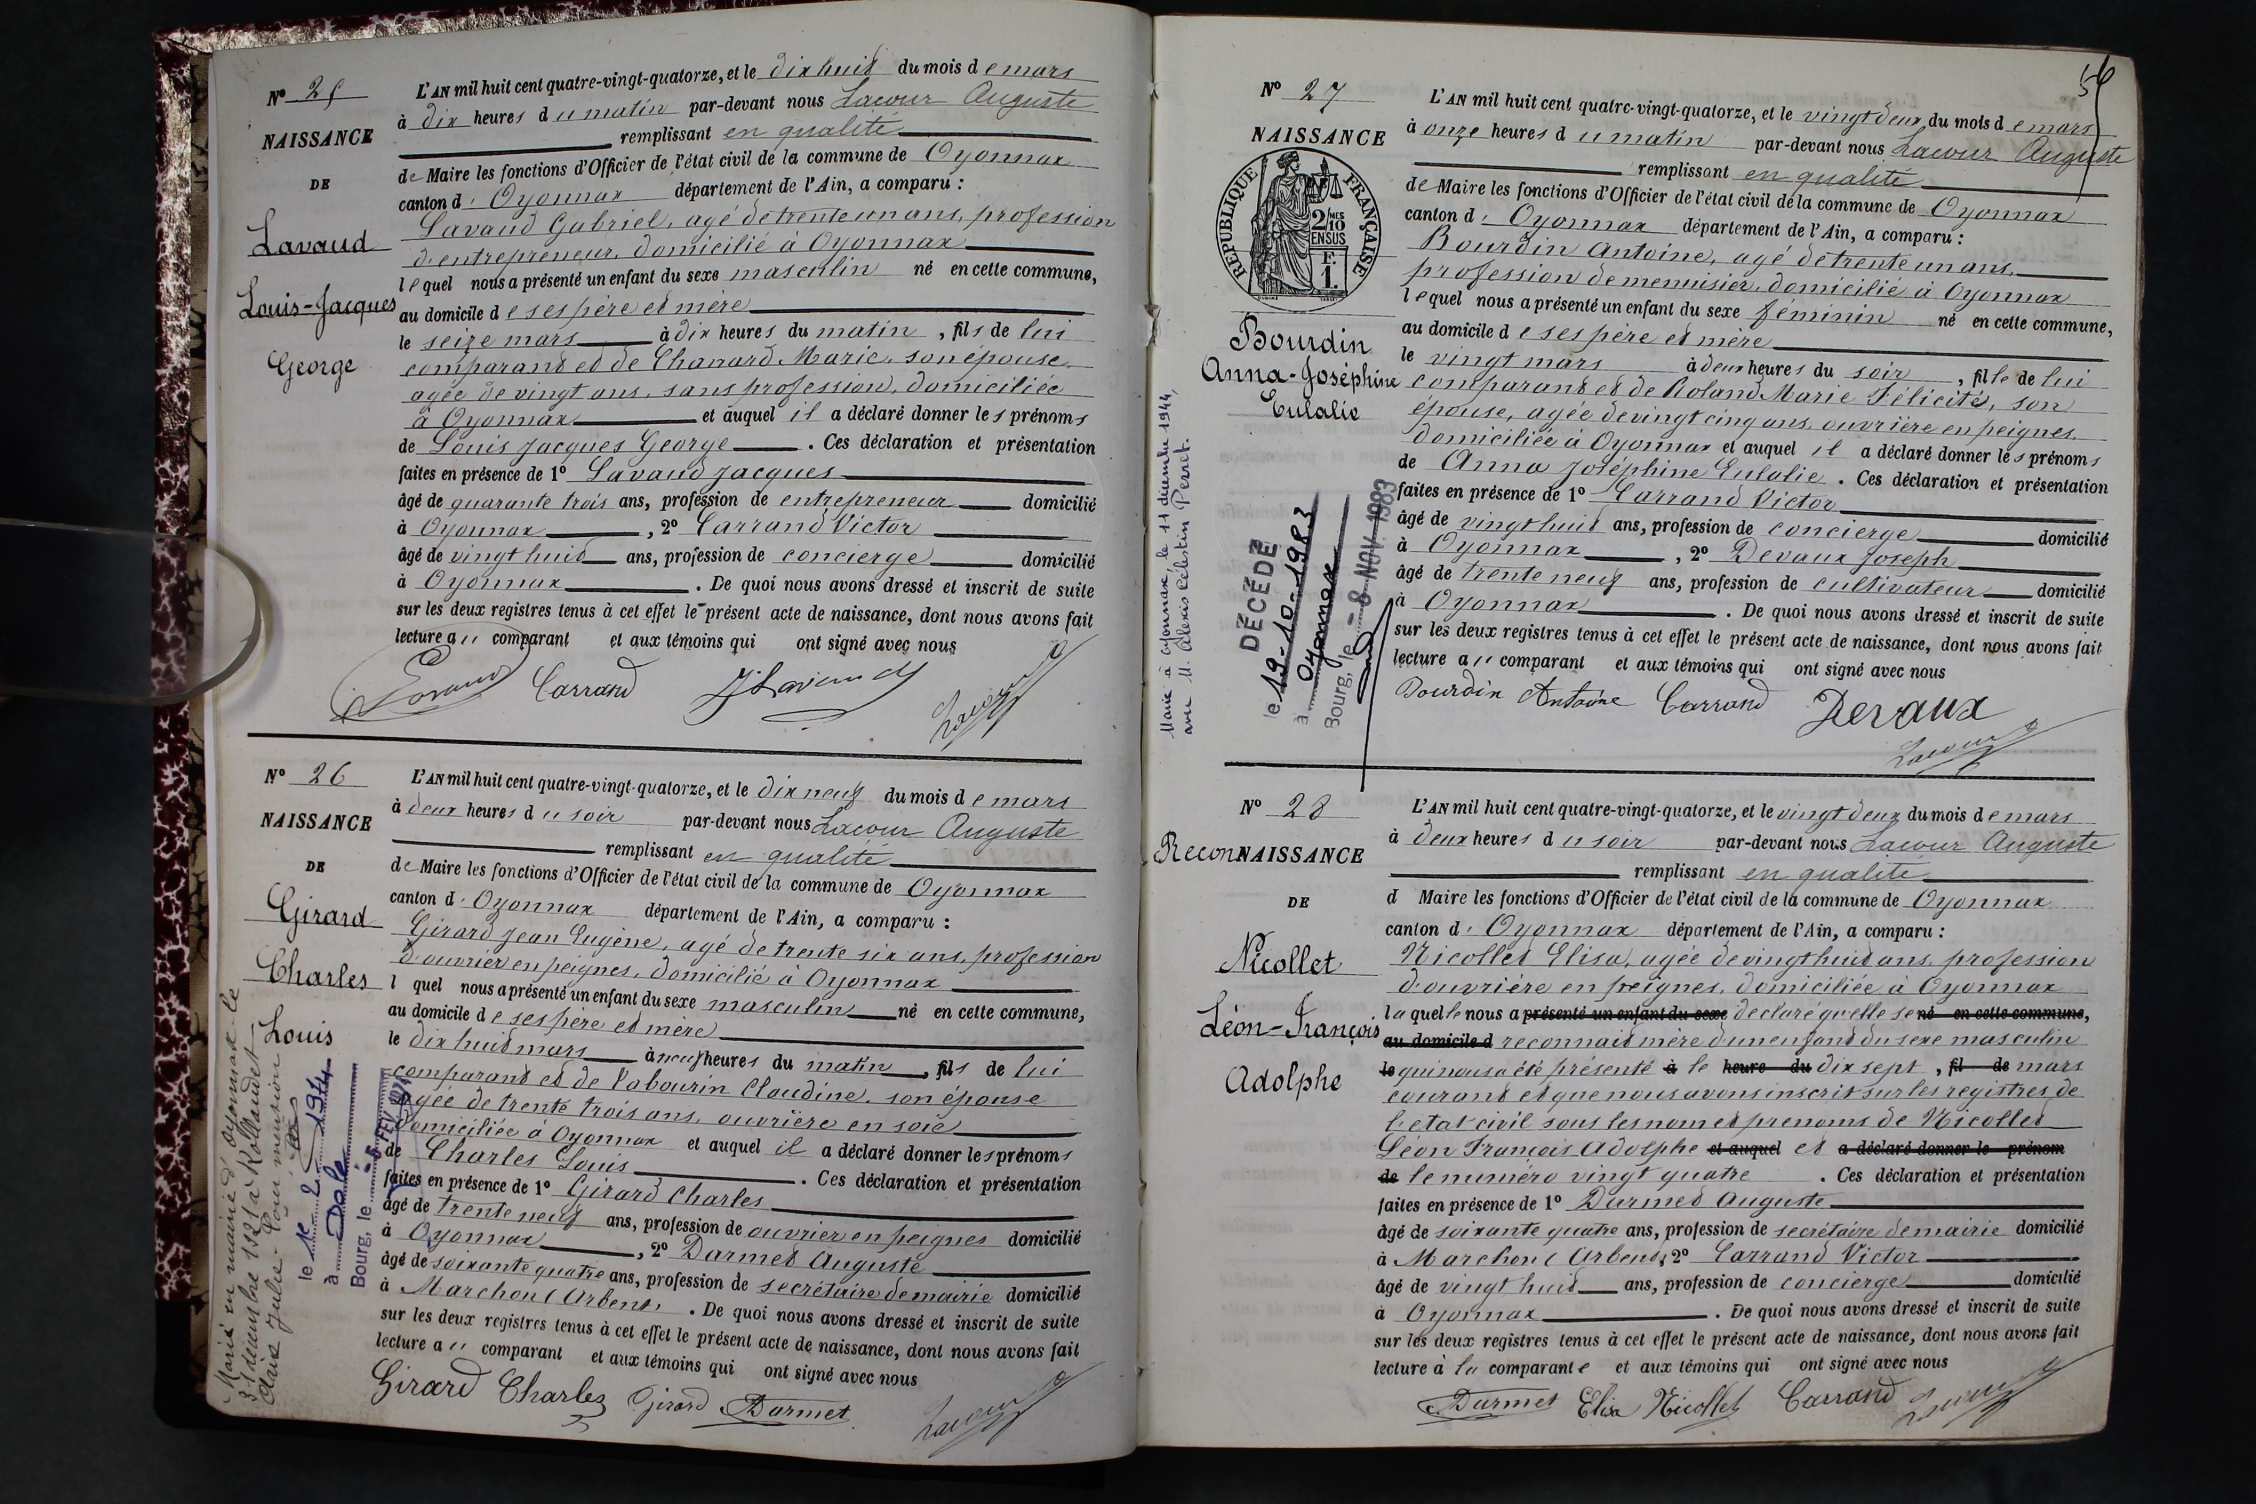 N° 25
NAISSANCE
DE
Lavaud
Louis-Jacques
George
L'AN mil huit cent quatre-vingt-quatorze, et le dix huit du mois de mars
à dix heures du matin par-devant nous Lacour Auguste
remplissant en qualité
de Maire les fonctions d'Officier de l'état civil de la commune de Oyonnax
canton d' Oyonnax département de l'Ain, a comparu :
Lavaud Gabriel, agé de trente un ans, profession
d'entrepreneur, domicilié à Oyonnax
lequel nous a présenté un enfant du sexe masculin né en cette commune,
au domicile de ses père et mère
le seize mars à dix heures du matin, fils de lui
comparant et de Chanard Marie, son épouse
agée de vingt ans, sans profession, domiciliée
à Oyonnax et auquel il a déclaré donner les prénoms
de Louis Jacques George. Ces déclaration et présentation
faites en présence de 1° Lavaud Jacques
âgé de quarante trois ans, profession de entrepreneur domicilié
à Oyonnax, 2° Carrand Victor
âgé de vingt huit ans, profession de concierge domicilié
à Oyonnax. De quoi nous avons dressé et inscrit de suite
sur les deux registres tenus à cet effet le présent acte de naissance, dont nous avons fait
lecture au comparant et aux témoins qui ont signé avec nous
Lavaud Carrand J Lavaud Lacour
N° 26
NAISSANCE
DE
Girard
Charles
Louis
Marié en mairie d'Oyonnax le
31 décembre 1921 à Rollandet
le 1er 2 1974
à Dole
Bourg, le -5 FEV 1974
L'AN mil huit cent quatre-vingt-quatorze, et le dix neuf du mois de mars
à deux heures du soir par-devant nous Lacour Auguste
remplissant en qualité
de Maire les fonctions d'Officier de l'état civil de la commune de Oyonnax
canton d' Oyonnax département de l'Ain, a comparu :
Girard Jean Eugène, agé de trente six ans, profession
d'ouvrier en peignes, domicilié à Oyonnax
l quel nous a présenté un enfant du sexe masculin né en cette commune,
au domicile de ses père et mère
le dix huit mars à neuf heures du matin, fils de lui
comparant et de Tabourin Claudine, son épouse
agée de trente trois ans, ouvrière en soie
domiciliée à Oyonnax et auquel il a déclaré donner les prénoms
de Charles Louis. Ces déclaration et présentation
faites en présence de 1° Girard Charles
âgé de trente neuf ans, profession de ouvrier en peignes domicilié
à Oyonnax, 2° Darmet Auguste
âgé de soixante quatre ans, profession de secrétaire de mairie domicilié
à Marchon (Arbent). De quoi nous avons dressé et inscrit de suite
sur les deux registres tenus à cet effet le présent acte de naissance, dont nous avons fait
lecture au comparant et aux témoins qui ont signé avec nous
Girard Charles Girard Darmet Lacour
56
N° 27
NAISSANCE
RÉPUBLIQUE FRANÇAISE
2/10 MES
EN SUS
F.
1.
Bourdin
Anna-Joséphine
Eulalie
Marié à Oyonnax, le 11 décembre 1944,
avec M. Alexis Célestin Perret.
DÉCÉDÉ
le 19-10-1983
à Oyonnax
Bourg, le -8 NOV. 1983
L'AN mil huit cent quatre-vingt-quatorze, et le vingt deux du mois de mars
à onze heures du matin par-devant nous Lacour Auguste
remplissant en qualité
de Maire les fonctions d'Officier de l'état civil de la commune de Oyonnax
canton d' Oyonnax département de l'Ain, a comparu :
Bourdin Antoine, agé de trente un ans,
profession de menuisier, domicilié à Oyonnax
lequel nous a présenté un enfant du sexe féminin né en cette commune,
au domicile de ses père et mère
le vingt mars à deux heures du soir, fille de lui
comparant et de Roland Marie Félicité, son
épouse, agée de vingt cinq ans, ouvrière en peignes,
domiciliée à Oyonnax et auquel il a déclaré donner les prénoms
de Anna Joséphine Eulalie. Ces déclaration et présentation
faites en présence de 1° Carrand Victor
âgé de vingt huit ans, profession de concierge domicilié
à Oyonnax, 2° Devaux Joseph
âgé de trente neuf ans, profession de cultivateur domicilié
à Oyonnax. De quoi nous avons dressé et inscrit de suite
sur les deux registres tenus à cet effet le présent acte de naissance, dont nous avons fait
lecture au comparant et aux témoins qui ont signé avec nous
Bourdin Antoine Carrand Devaux
Lacour
N° 28
ReconNAISSANCE
DE
Nicollet
Léon-François
Adolphe
L'AN mil huit cent quatre-vingt-quatorze, et le vingt deux du mois de mars
à deux heures du soir par-devant nous Lacour Auguste
remplissant en qualité
d Maire les fonctions d'Officier de l'état civil de la commune de Oyonnax
canton d' Oyonnax département de l'Ain, a comparu :
Nicollet Elisa, agée de vingt huit ans, profession
d'ouvrière en peignes, domiciliée à Oyonnax
laquelle nous a présenté un enfant du sexe déclaré qu'elle se né en cette commune,
au domicile d reconnait mère d'un enfant du sexe masculin
le qui nous a été présenté à le heure du dix sept, fil de mars
courant et que nous avons inscrit sur les registres de
l'état civil sous les nom et prénoms de Nicollet
Léon François Adolphe et auquel et a déclaré donner le prénom
de le numéro vingt quatre. Ces déclaration et présentation
faites en présence de 1° Darmet Auguste
âgé de soixante quatre ans, profession de secrétaire de mairie domicilié
à Marchon (Arbent), 2° Carrand Victor
âgé de vingt huit ans, profession de concierge domicilié
à Oyonnax. De quoi nous avons dressé et inscrit de suite
sur les deux registres tenus à cet effet le présent acte de naissance, dont nous avons fait
lecture à la comparante et aux témoins qui ont signé avec nous
Darmet Elisa Nicollet Carrand Lacour